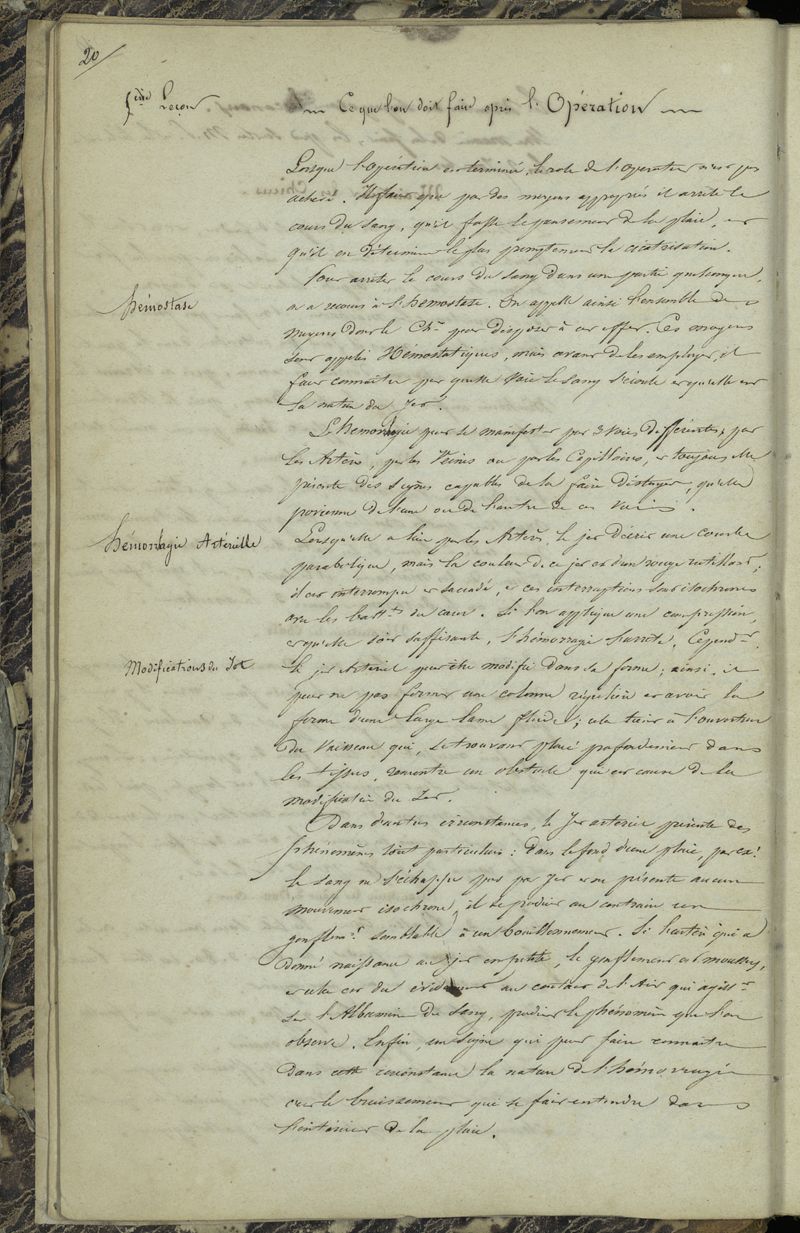 20/
5ème Leçon
Ce que l'on doit faire après l'Opération
Lorsque l'opération est terminée, le role de l'operateur n'est pas
achevé. Il faut que par des moyens appropriés il arrete le
cours du sang, qu'il fasse le pansement de la plaie, et
qu'il en détermine le plus promptement la cicatrisation.
Pour arreter le cours du sang dans une partie quelconque,
Hémostase
on a recours à l'hémostase. On appelle ainsi l'ensemble des
moyens dont le Chn peut disposer à cet effet. Ces moyens
sont appelés Hémostatiques, mais avant de les employer, il
faut connaitre par quelle voie le sang s'écoule et quelle est
la nature du Jet.
L'hémorragie peut se manifester par 3 voies différentes; par
les Artères, par les Veines ou par les Capillaires, et toujours elle
présente des signes capables de la faire distinguer, qu'elle
provienne de l'une ou de l'autre de ces voies.
Hémorragie Artérielle
Lorsqu'elle a lieu par les Artères, le jet décrit une courbe
parabolique, mais la couleur de ce jet est d'un rouge rutilant;
il est interrompu et saccadé, et ces interruptions sont isochrones
avec les battts du cœur. Si l'on applique une compression,
et qu'elle soit suffisante, l'hémorragie s'arrete. Cependt
Modifications du Jet
le jet Artériel peut être modifié dans sa forme; ainsi, il
peut ne pas former une colonne régulière et avoir la
forme d'une large lame fluide; cela tient à l'ouverture
du vaisseau qui, se trouvant placé profondément dans
les tissus, rencontre un obstacle qui est cause de la
modification du Jet.
Dans d'autres circonstances, le Jet artériel présente des
phénomènes tout particuliers: dans le fond d'une plaie, par ex:
le sang ne s'échappe pas par jet et ne présente aucun
mouvement isochrone, il se produit au contraire un
gonflemt semblable à un bouillonnement. Si l'artère qui a
donné naissance au jet est petite, le gonflement est mousseux,
et cela est du évidement au contact de l'Air qui agisst
sur l'Albumine du sang, produit le phénomène que l'on
observe. Enfin, un signe qui peut faire connaitre
dans cette circonstance la nature de l'hémorragie
c'est le bruissement qui se fait entendre dans
l'intérieur de la plaie.